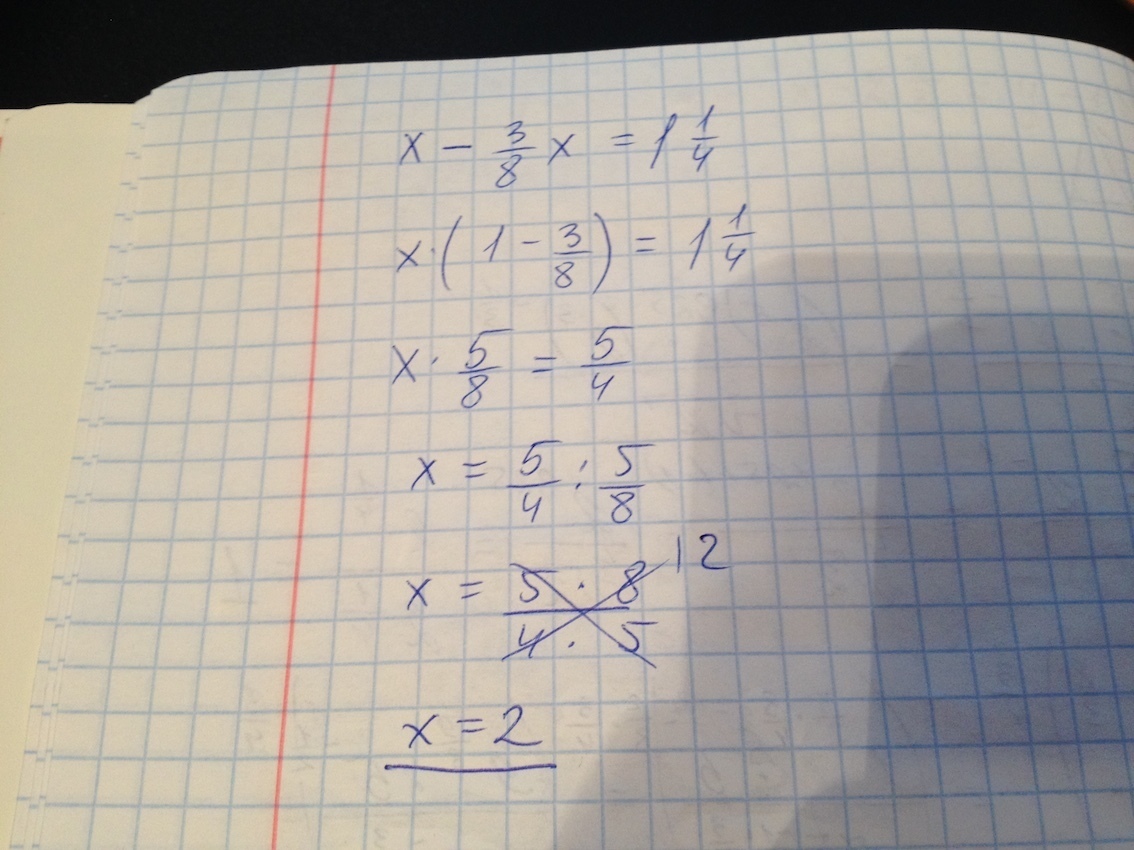 x - 3/8 x = 1 1/4
x · ( 1 - 3/8 ) = 1 1/4
x · 5/8 = 5/4
x = 5/4 : 5/8
x = 5 · 8 / 4 · 5 | 2
x = 2